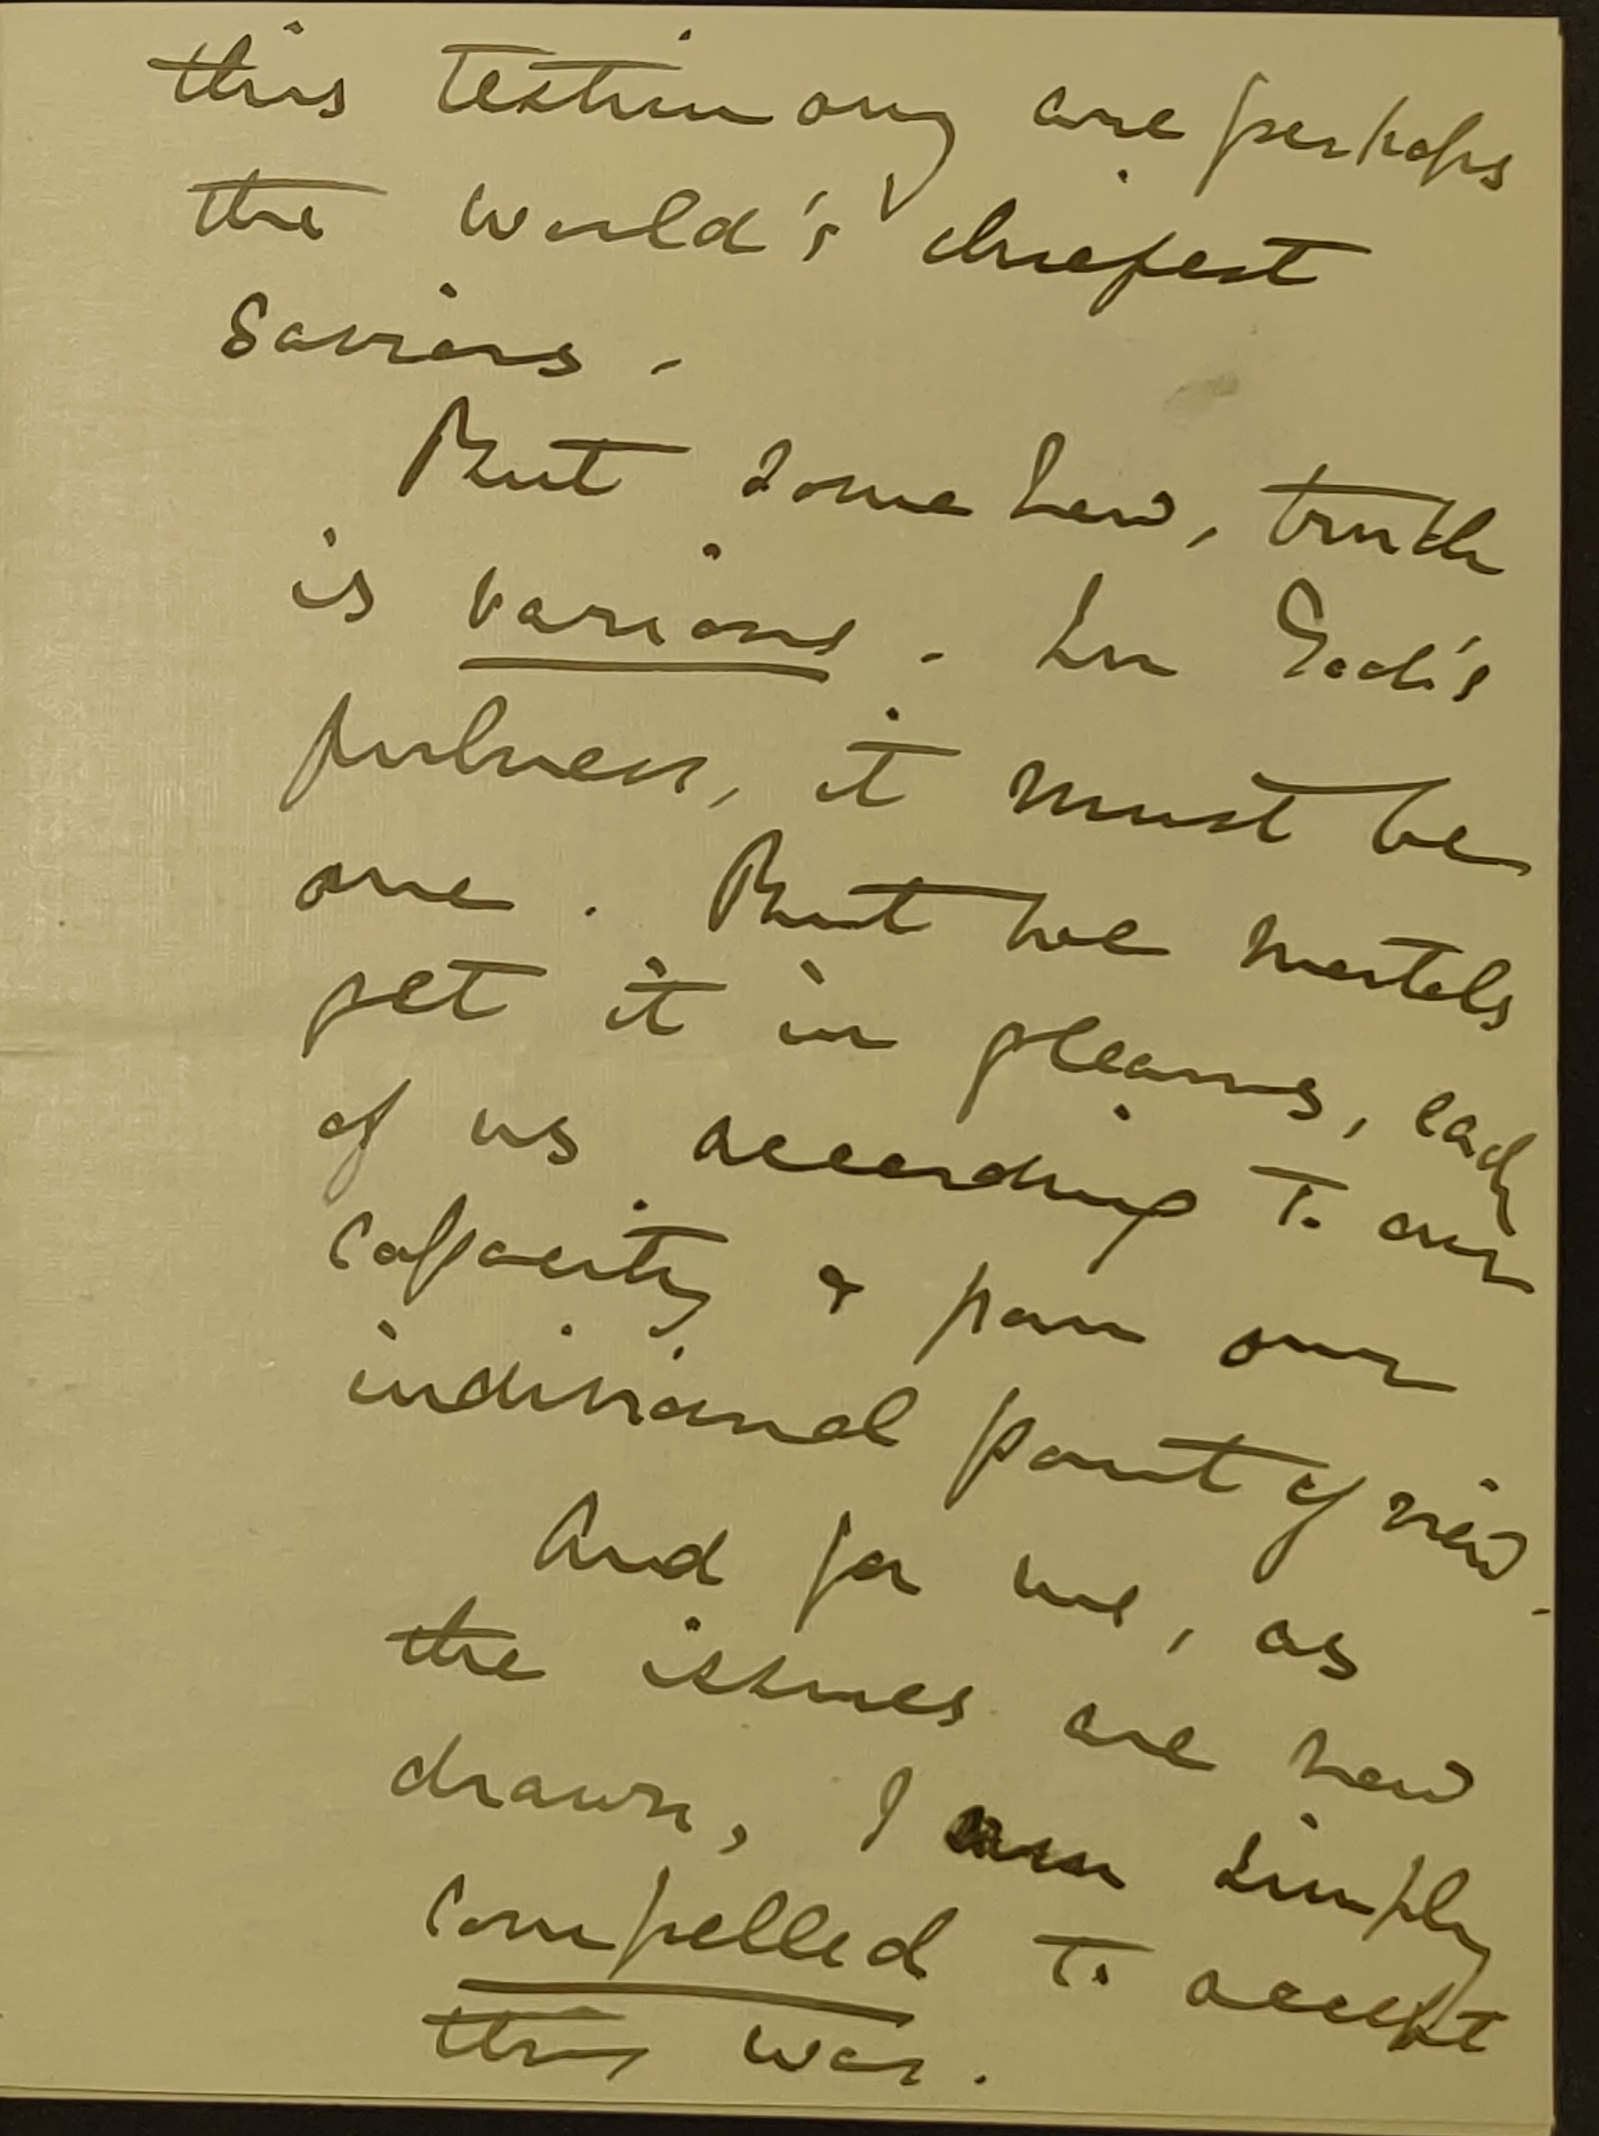 this testimony are perhaps
the world's chiefest
Saviors.
But somehow, truth
is various. In God's
fulness, it must be
one. But we mortals
get it in gleams, each
of us according to our
capacity & from our
individual point of view.
And for me, as
the issues are now
drawn, I am simply
compelled to accept
this war.